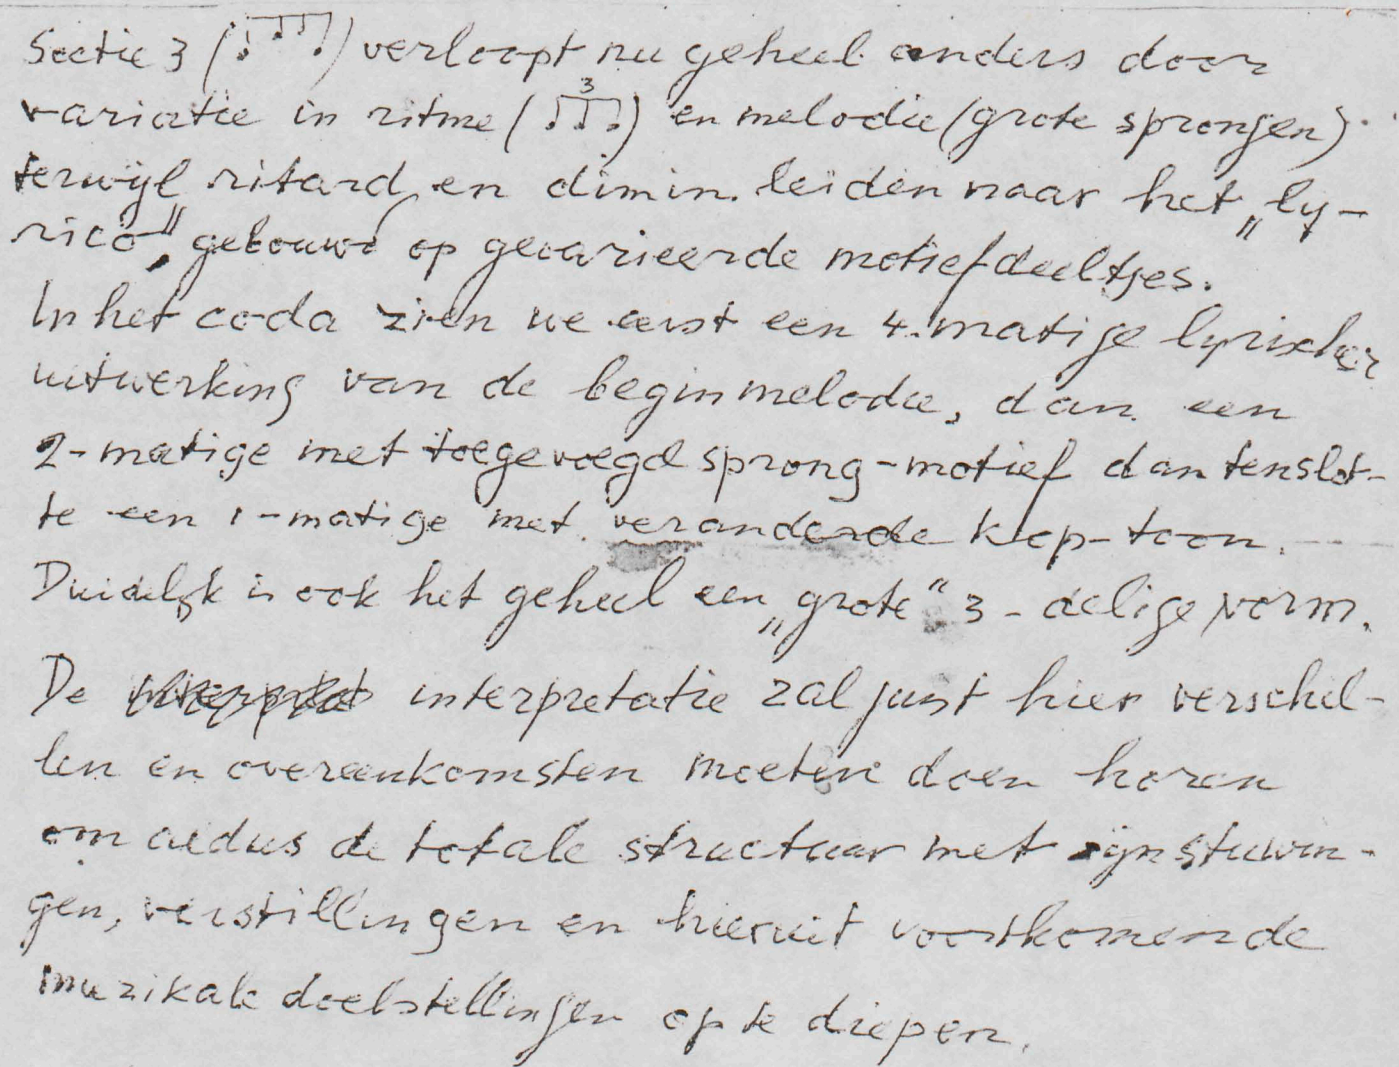 Sectie 3 (♩♫♩) verloopt nu geheel anders door
variatie in ritme (3) en melodie (grote sprongen)
terwijl ritard. en dimin. leiden naar het „ly-
rico”, gebouwd op gevarieerde motiefdeeltjes.
In het coda zien we eerst een 4-matige lyrischer
uitwerking van de beginmelodie, dan een
2-matige met toegevoegd sprong-motief dan tenslot-
te een 1-matige met veranderde kop-toon.
Duidelijk is ook het geheel een „grote” 3-delige vorm.
De interpretatie zal juist hier verschil-
len en overeenkomsten moeten doen horen
om aldus de totale structuur met zijn stuwin-
gen, verstillingen en hieruit voortkomende
muzikale doelstellingen op te diepen.